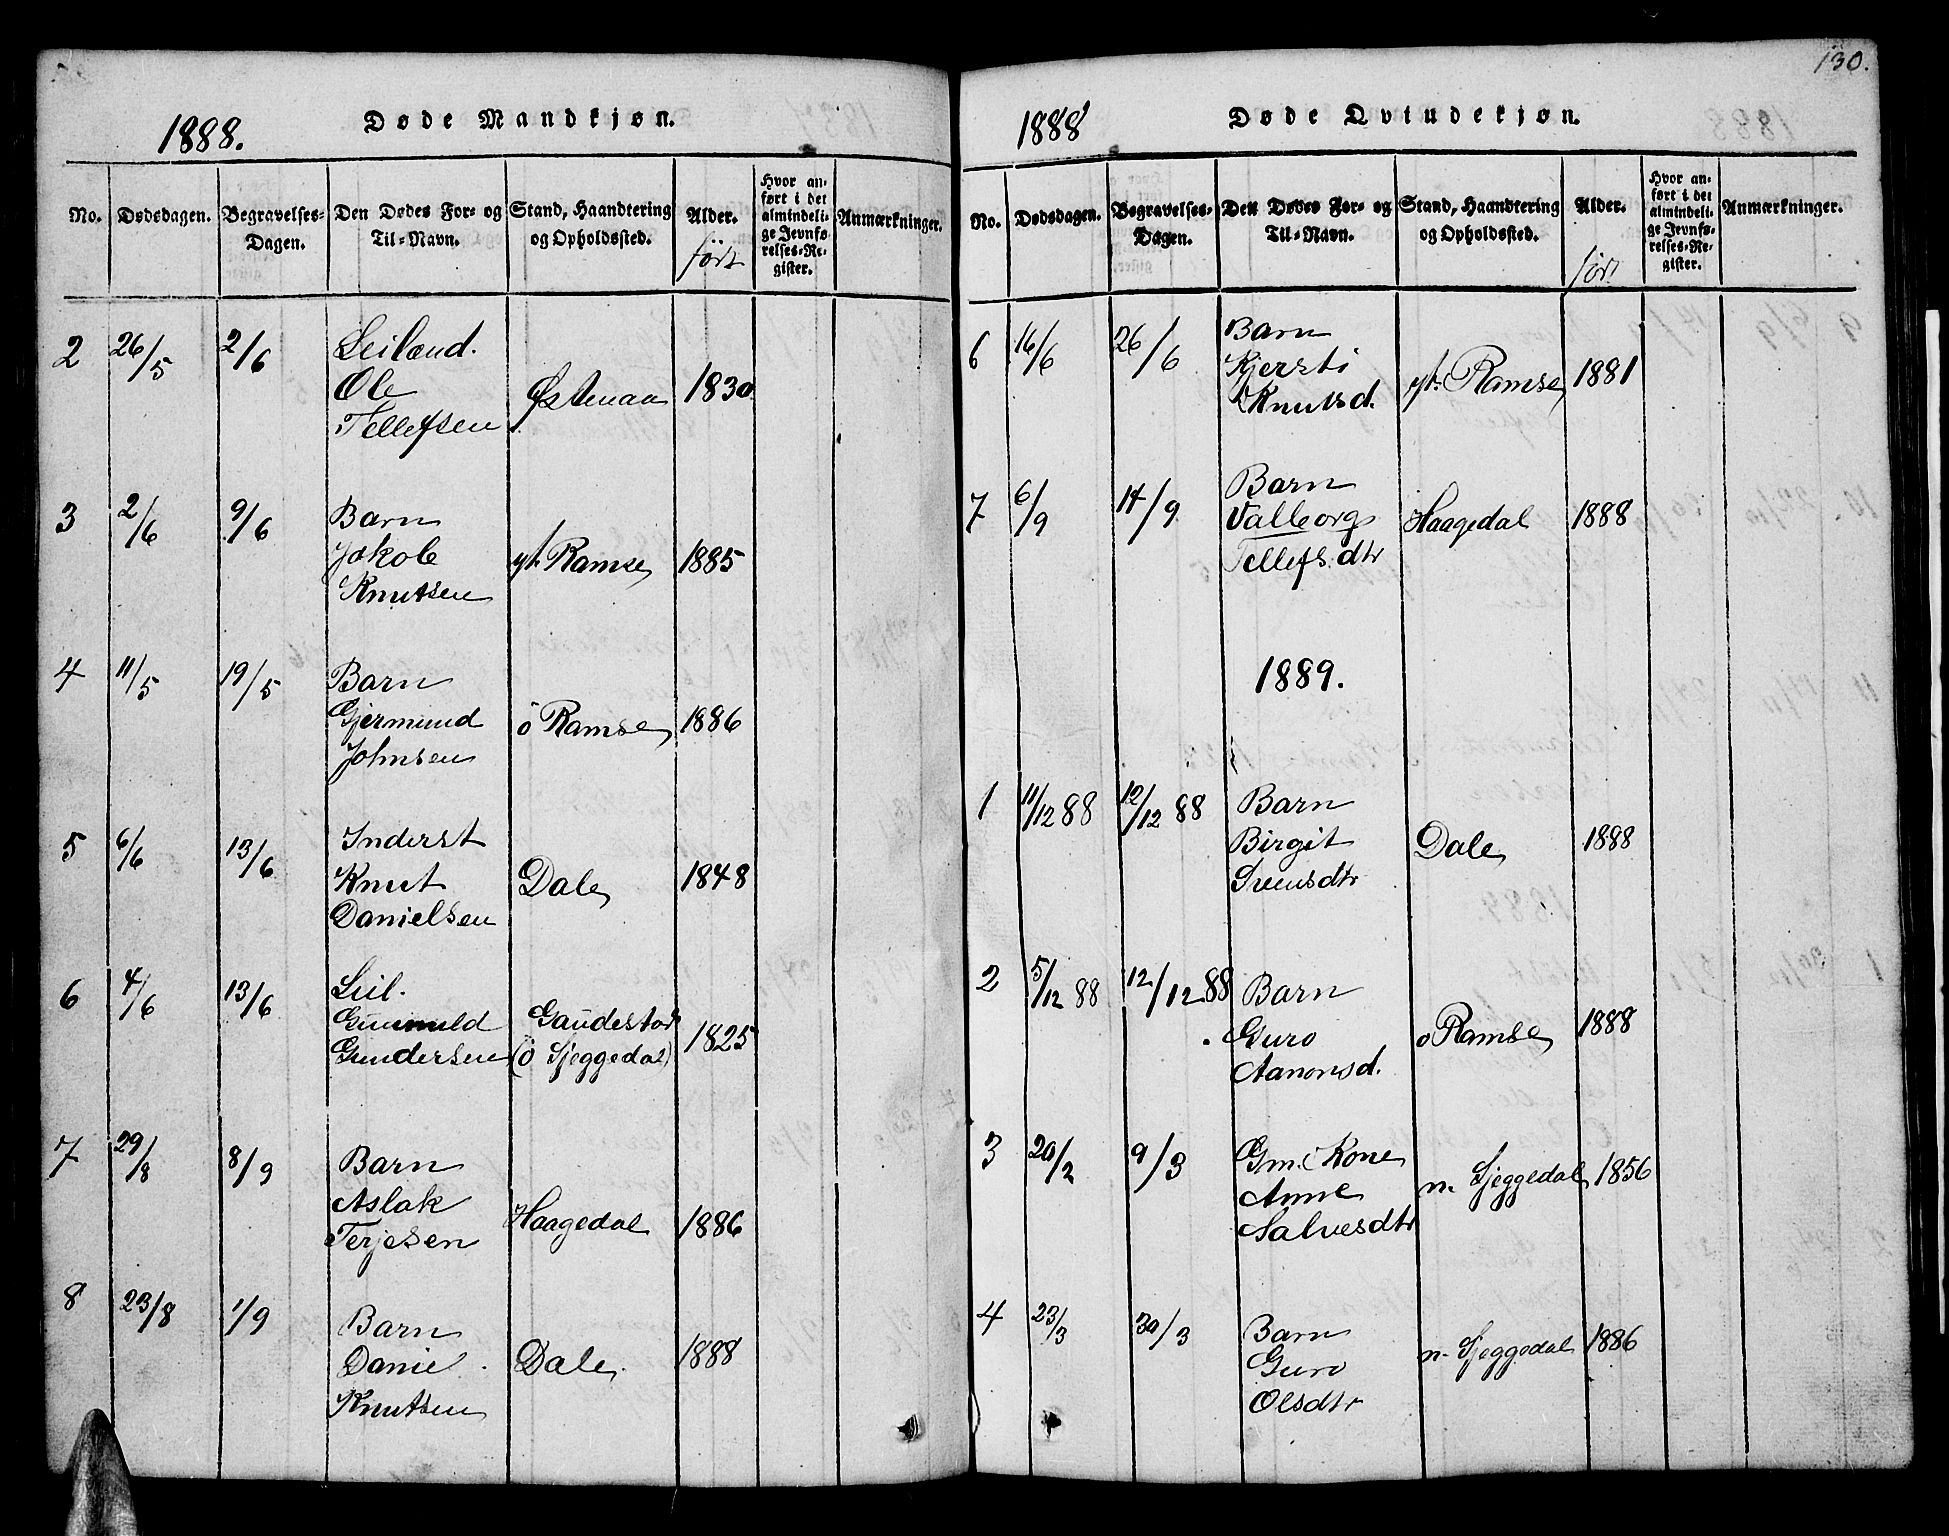 1888. Døde Mandkjøn.
No. Dødsdagen. Begravelses-Dagen. Den Dødes For- og Til-Navn. Stand, Haandtering og Opholdssted. Alder. født Hvor anført i det almindelige Jevnførelses-Register. Anmærkninger.
2 26/5 2/6 Leilænd.
Ole Østenaa 1830
Tellefsen
3 2/6 9/6 Barn
Jakob yt. Ramse 1885
Knutsen
4 11/5 19/5 Barn
Gjermund ö Ramse 1886
Johnsen
5 6/6 13/6 Inderst
Knut Dale 1848
Danielsen
6 4/6 13/6 Leil.
Gunnuld Gaudestad 1825
Gundersen (ö Sjeggedal)
7 29/8 8/9 Barn
Aslak Haagedal 1886
Terjesen
8 23/8 1/9 Barn
Daniel Dale. 1888
Knutsen
130.
1888 Døde Qvindekjøn.
No. Dødsdagen. Begravelses-Dagen. Den Dødes For- og Til-Navn. Stand, Haandtering og Opholdssted. Alder. født Hvor anført i det almindelige Jevnførelses-Register. Anmærkninger.
6 16/6 26/6 Barn
Kjersti yt. Ramse 1881
Knutsd.
7 6/9 14/9 Barn
Valborg Haagedal 1888
Tellefs.dtr
1889.
1 11/12 88 12/12 88 Barn
Birgit Dale 1888
Svensdtr
2 5/12 88 12/12 88 Barn
Guro o Ramse 1888
Aanonsd.
3 20/2 9/3 Gm. Kone
Anne n. Sjeggedal 1856
Salvesdtr
4 23/3 30/3 Barn
Guro n. Sjeggedal 1886
Olsdtr